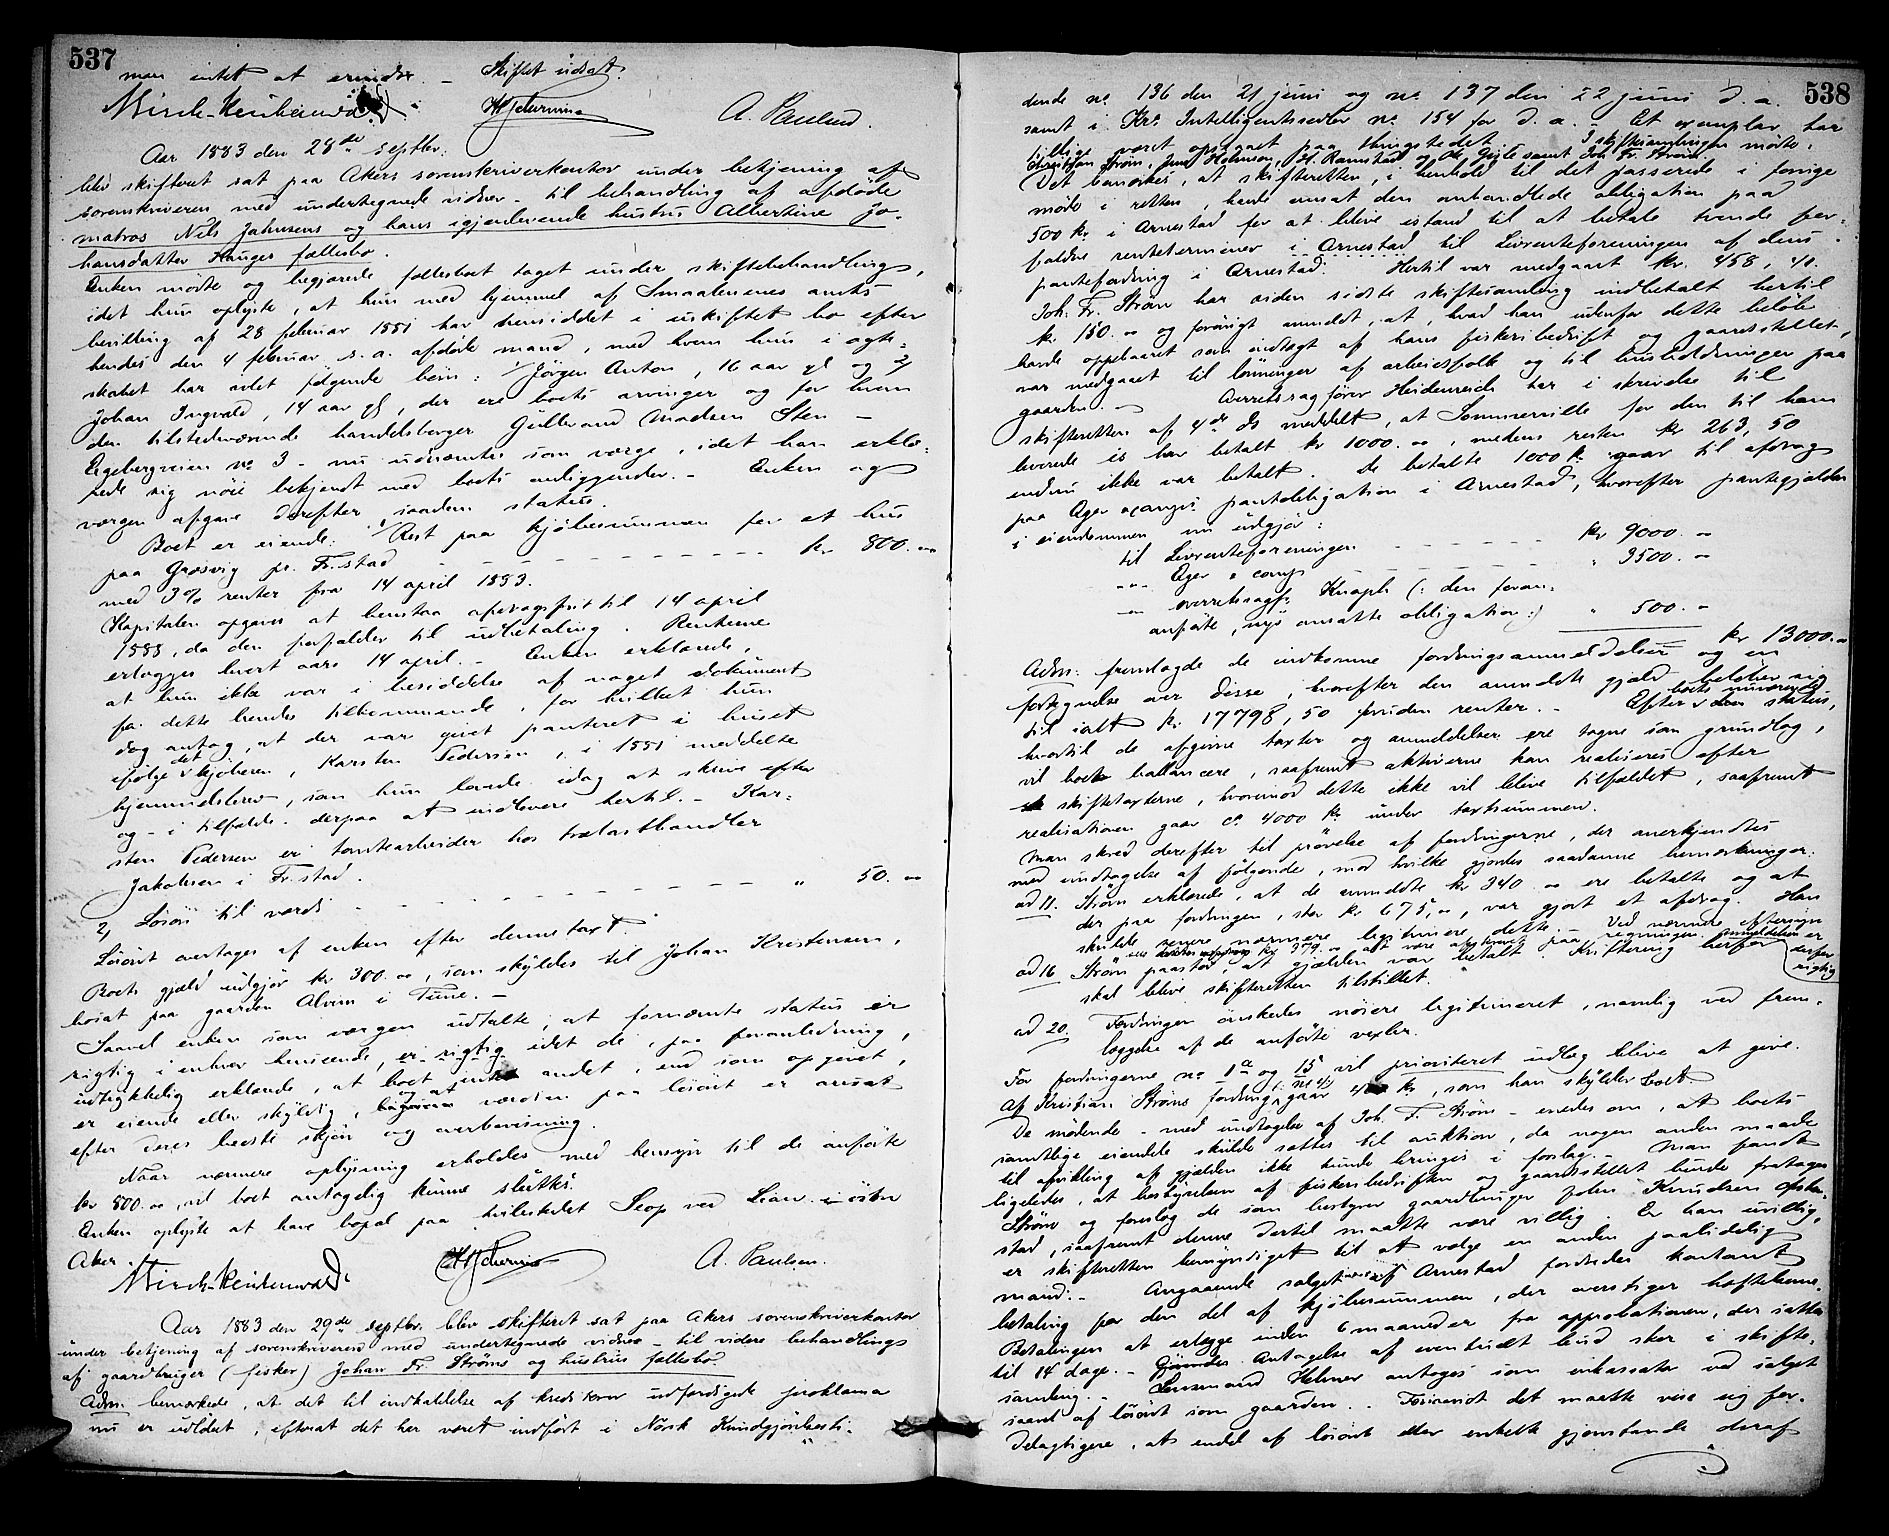 537
man intet at erindre. – Skiftet udsat.
A. Paulsen.
Aar 1883 den 28de septbr.
blev skifteret sat paa Akers sorenskriverkontor under betjening af
sorenskriveren med undertegnede vidner – til behandling af afdøde
matros Nils Jahnsens og hans igjenlevende hustru Albertine Jo-
hansdatter Hauges fællesbo.
Enken mødte og begjærede fællesboet taget under skiftebehandling,
idet hun oplyste, at hun med hjemmel af Smaalenenes amts
bevilling af 28 februar 1881 har hensiddet i uskiftet bo efter
hendes den 4 februar s. a. afdøde mand, med hvem hun i ægte-
skabet har avlet følgende børn: 1) Jörgen Anton, 16 aar gl og 2)
Johan Ingvald, 14 aar gl, der ere boets arvinger og for hvem
den tilstedeværende handelsborger Gulbrand Madsen Sten –
Egebergveien no 3 – nu udnævntes som værge, idet han erklæ-
rede sig nöie bekjendt med boets anliggender. – Enken og
værgen afgave derefter saadan status.
Boet er eiende: 1, Rest paa kjöbesummen for et hus
paa Græsvig pr. Fr.stad - - - - - - - kr 800.00
med 3% renter fra 14 april 1883.
Kapitalen opgaves at henstaa afdragsfrit til 14 april
1888, da den forfalder til udbetaling. Renterne
erlægges hvert aars 14 april. – Enken erklærede,
at hun ikke var i besiddelse af noget dokument
for dette hendes tilkommende, for hvilket hun
dog antog, at der var givet panteret i huset
ifølge det kjöberen, Karsten Pedersen, i 1881 meddelte
hjemmelsbrev, som hun lovede idag at skrive efter
og – i tilfælde – derpaa at indlevere hertil. – Kar-
sten Pedersen er tomtearbeider hos trælasthandler
Jakobsen i Fr.stad.
2, Lösöre til værdi - - - - - - - " 50.00
Lösöret overtages af enken efter denne taxt.
Boets gjæld udgjör kr 300.00, som skyldes til Johan Kristensen,
bosat paa gaarden Alvim i Tune. –
Saavel enken som værgen udtalte, at fornævnte status er
rigtig i enhver henseende, er rigtig idet de, paa foranledning,
udtrykkelig erklærede, at boet intet andet, end som opgivet,
er eiende eller skyldig, og at værdien paa lösöret er ansat
efter deres bedste skjön og overbevisning.
Naar nærmere oplysning erholdes med hensyn til de anförte
kr 800.00, vil boet antagelig kunne sluttes.
Enken oplyste at have bopæl paa hvilestedet Skop ved Lian i östre
Aker.
A. Paulsen.
Aar 1883 den 29de septbr. blev skifteret sat paa Akers sorenskriverkontor
under betjening af sorenskriveren med undertegnede vidner – til videre behandling
af gaardbruger (fisker) Johan Fr. Ströms og hustrus fællesbo.
Adm. bemærkede, at det til indkaldelse af kreditorer udfærdigede proklama
nu er udlöbet, efterat det har været indfört i Norsk Kundgjörelsesti-
538
dende no 136 den 21 juni og no 137 den 22 juni d. a.
samt i Kra Intelligentssedler no 154 for d. a. – Et exemplar har
tillige været opslaaet paa thingstedet. I skiftesamlingen mødte:
Kristian Ström, Jens Holmsen, H. Ramstad og samt Joh. Fr. Ström.
(Det bemærkes, at skifteretten, i henhold til det passerede i forrige
møde i retten, havde omsat den omhandlede obligation paa
500 kr. i Arnestad for at blive istand til at betale tvende for-
faldne renteterminer i Arnestad til Livrenteforeningen af dens
pantefordring i Arnestad. Hertil var medgaaet kr. 458,40.
Joh. Fr. Ström har siden sidste skiftesamling indbetalt hertil
kr 150.00 og forövrigt anmeldt, at, hvad han udenfor dette belöb
havde oppebaaret som indtægt af hans fiskeribedrift og gaardstellet,
var medgaaet til lönninger af arbeidsfolk og til husholdningen paa
gaarden. – Overretssagförer Heidenreich har i skrivelse til
skifteretten af 4de ds meddelt, at Sommerville for den til ham
leverede is har betalt kr 1000.00, medens resten kr 263,50
endnu ikke var betalt. De betalte 1000 kr. gaar til afdrag
paa Ager &amp; comps pantobligation i Arnestad, hvorefter pantegjælden
i eiendommen nu udgjör:
til Livrenteforeningen - - - - kr 9000.00
-"- Ager &amp; comp - - - - " 3500.00
-"- overretssagf. Knaph (: den foran-
anförte, nys omsatte obligation :) " 500.00
kr 13000.00
Adm. fremlagde de indkomne fordringsanmeldelser og en
fortegnelse over disse, hvorefter den anmeldte gjæld belöber sig
til ialt kr 17798,50 foruden renter. – Efter boets nuværende status,
hvortil de afgivne taxter og anmeldelser ere tagne som grundlag,
vil boet ballancere, saafremt aktiverne kan realiseres efter
skiftetaxterne, hvorimod dette ikke vil blive tilfældet, saafremt
realisationen gaar ca 4000 kr under taxtsummen.
Man skred derefter til prövelse af fordringerne, der anerkjendtes
med undtagelse af fölgende, mod hvilke gjordes saadanne bemærkninger:
ad 11. Ström erklærede, at de anmeldte kr 340.00 ere betalte og at
der paa fordringen, stor kr 675,00, var gjort et afdrag. Han
skulde senere nærmere legitimere dette. – Ved nærmere eftersyn
ad 16 Ström paastod, at gjælden var betalt. Kvittering herfor
skal blive skifteretten tilstillet.
anmeldelsen er derfor rigtig
ad 20. Fordringen önskedes nöiere legitimeret, nemlig ved frem-
læggelse af de anförte vexler.
For fordringerne no 1a og 15 vil prioriteret udlæg blive at give.
Af Kristian Ströms fordring gaar kr, som han skylder boet.
De mødende – med undtagelse af Joh. F. Ström – enedes om, at boets
samtlige eiendele skulde sættes til auktion, da nogen anden maade
til afvikling af gjælden ikke kunde bringes i forslag. – Man fandt
ligeledes, at bestyrelsen af fiskeribedriften og gaardstellet burde fratages
Ström og foreslog de som bestyrer gaardbruger Knudsen
stad, saafremt denne dertil maatte være villig. Er han uvillig,
er skifteretten bemyndiget til at vælge en anden paalidelig
mand. – Angaaende salget af Arnestad fordredes kontant
betaling for den del af kjöbesummen, der overstiger hæftelserne.
Betalingen at erlægge inden 6 maaneder fra approbationen, der sættes
til 14 dage. – Antagelse af eventuelt bud sker i skifte-
samling. – Lensmand Helmer antoges som inkassator ved salget
saavel af lösöret som gaarden. – Forinvidt det maatte vise sig for-
delagtigere, at endel af lösöret eller enkelte gjenstande deraf